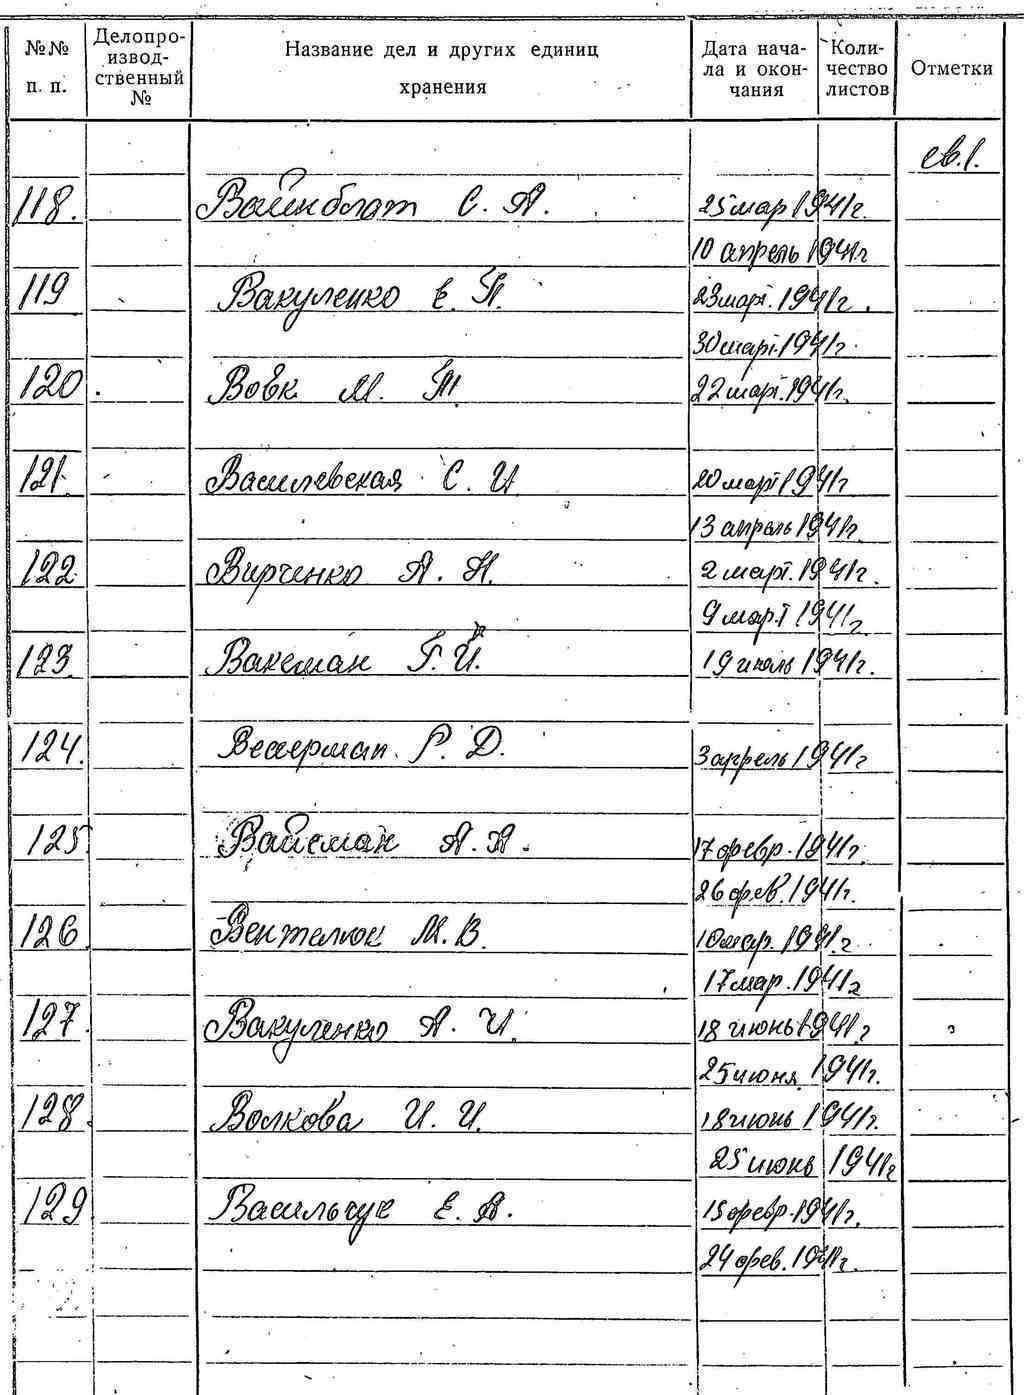 №№ п. п.
Делопро-
извод-
ственный
№
Название дел и других единиц
хранения
Дата нача-
ла и окон-
чания
Коли-
чество
листов
Отметки
св.1.
118. Вайнблат С. А. 25 мар 1941г.
10 апрель 1941г
119 Вакуленко Е. П. 23 март. 1941г.
30 март. 1941г.
120. Вовк М. Т. 22 март. 1941г.
121. Василевская С. И 20 март 1941г
13 апрель 1941г.
122. Вирченко А. Н. 2 март. 1941г.
9 март 1941г.
123. Ваксман Г. И. 19 июль 1941г.
124. Р. Д. 3 апрель 1941г
125. Вайсман А. А. 17 февр. 1941г.
26 фев. 1941г.
126. М. В. 10 мар. 1941.г
17 мар. 1941г
127. Вакуленко А. И. 18 июнь 1941.г
25 июня 1941г.
128. Волкова И. И. 18 июнь 1941г.
25 июнь 1941г
129 Васильчук Е. А. 15 февр. 1941г.
24 фев. 1941г.